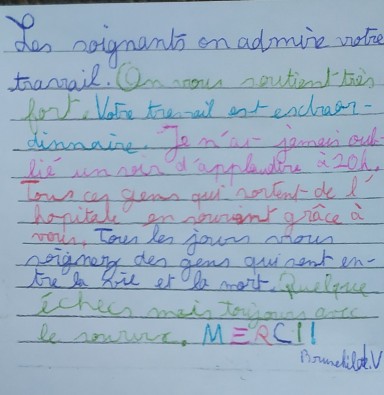 Les soignants on admire votre
travail. On vous soutient très
fort. Votre travail est exchaor-
dinnaire. Je n'ai jamais oub-
lié un soir d'applaudire à 20h.
Tous ces gens qui sortent de l'
hopitale en sourient grâce à
vous. Tous les jours vous
soignez des gens qui sont en-
tre la vie et la mort. Quelque
échecs mais toujours avec
le sourire. MERCI!
V